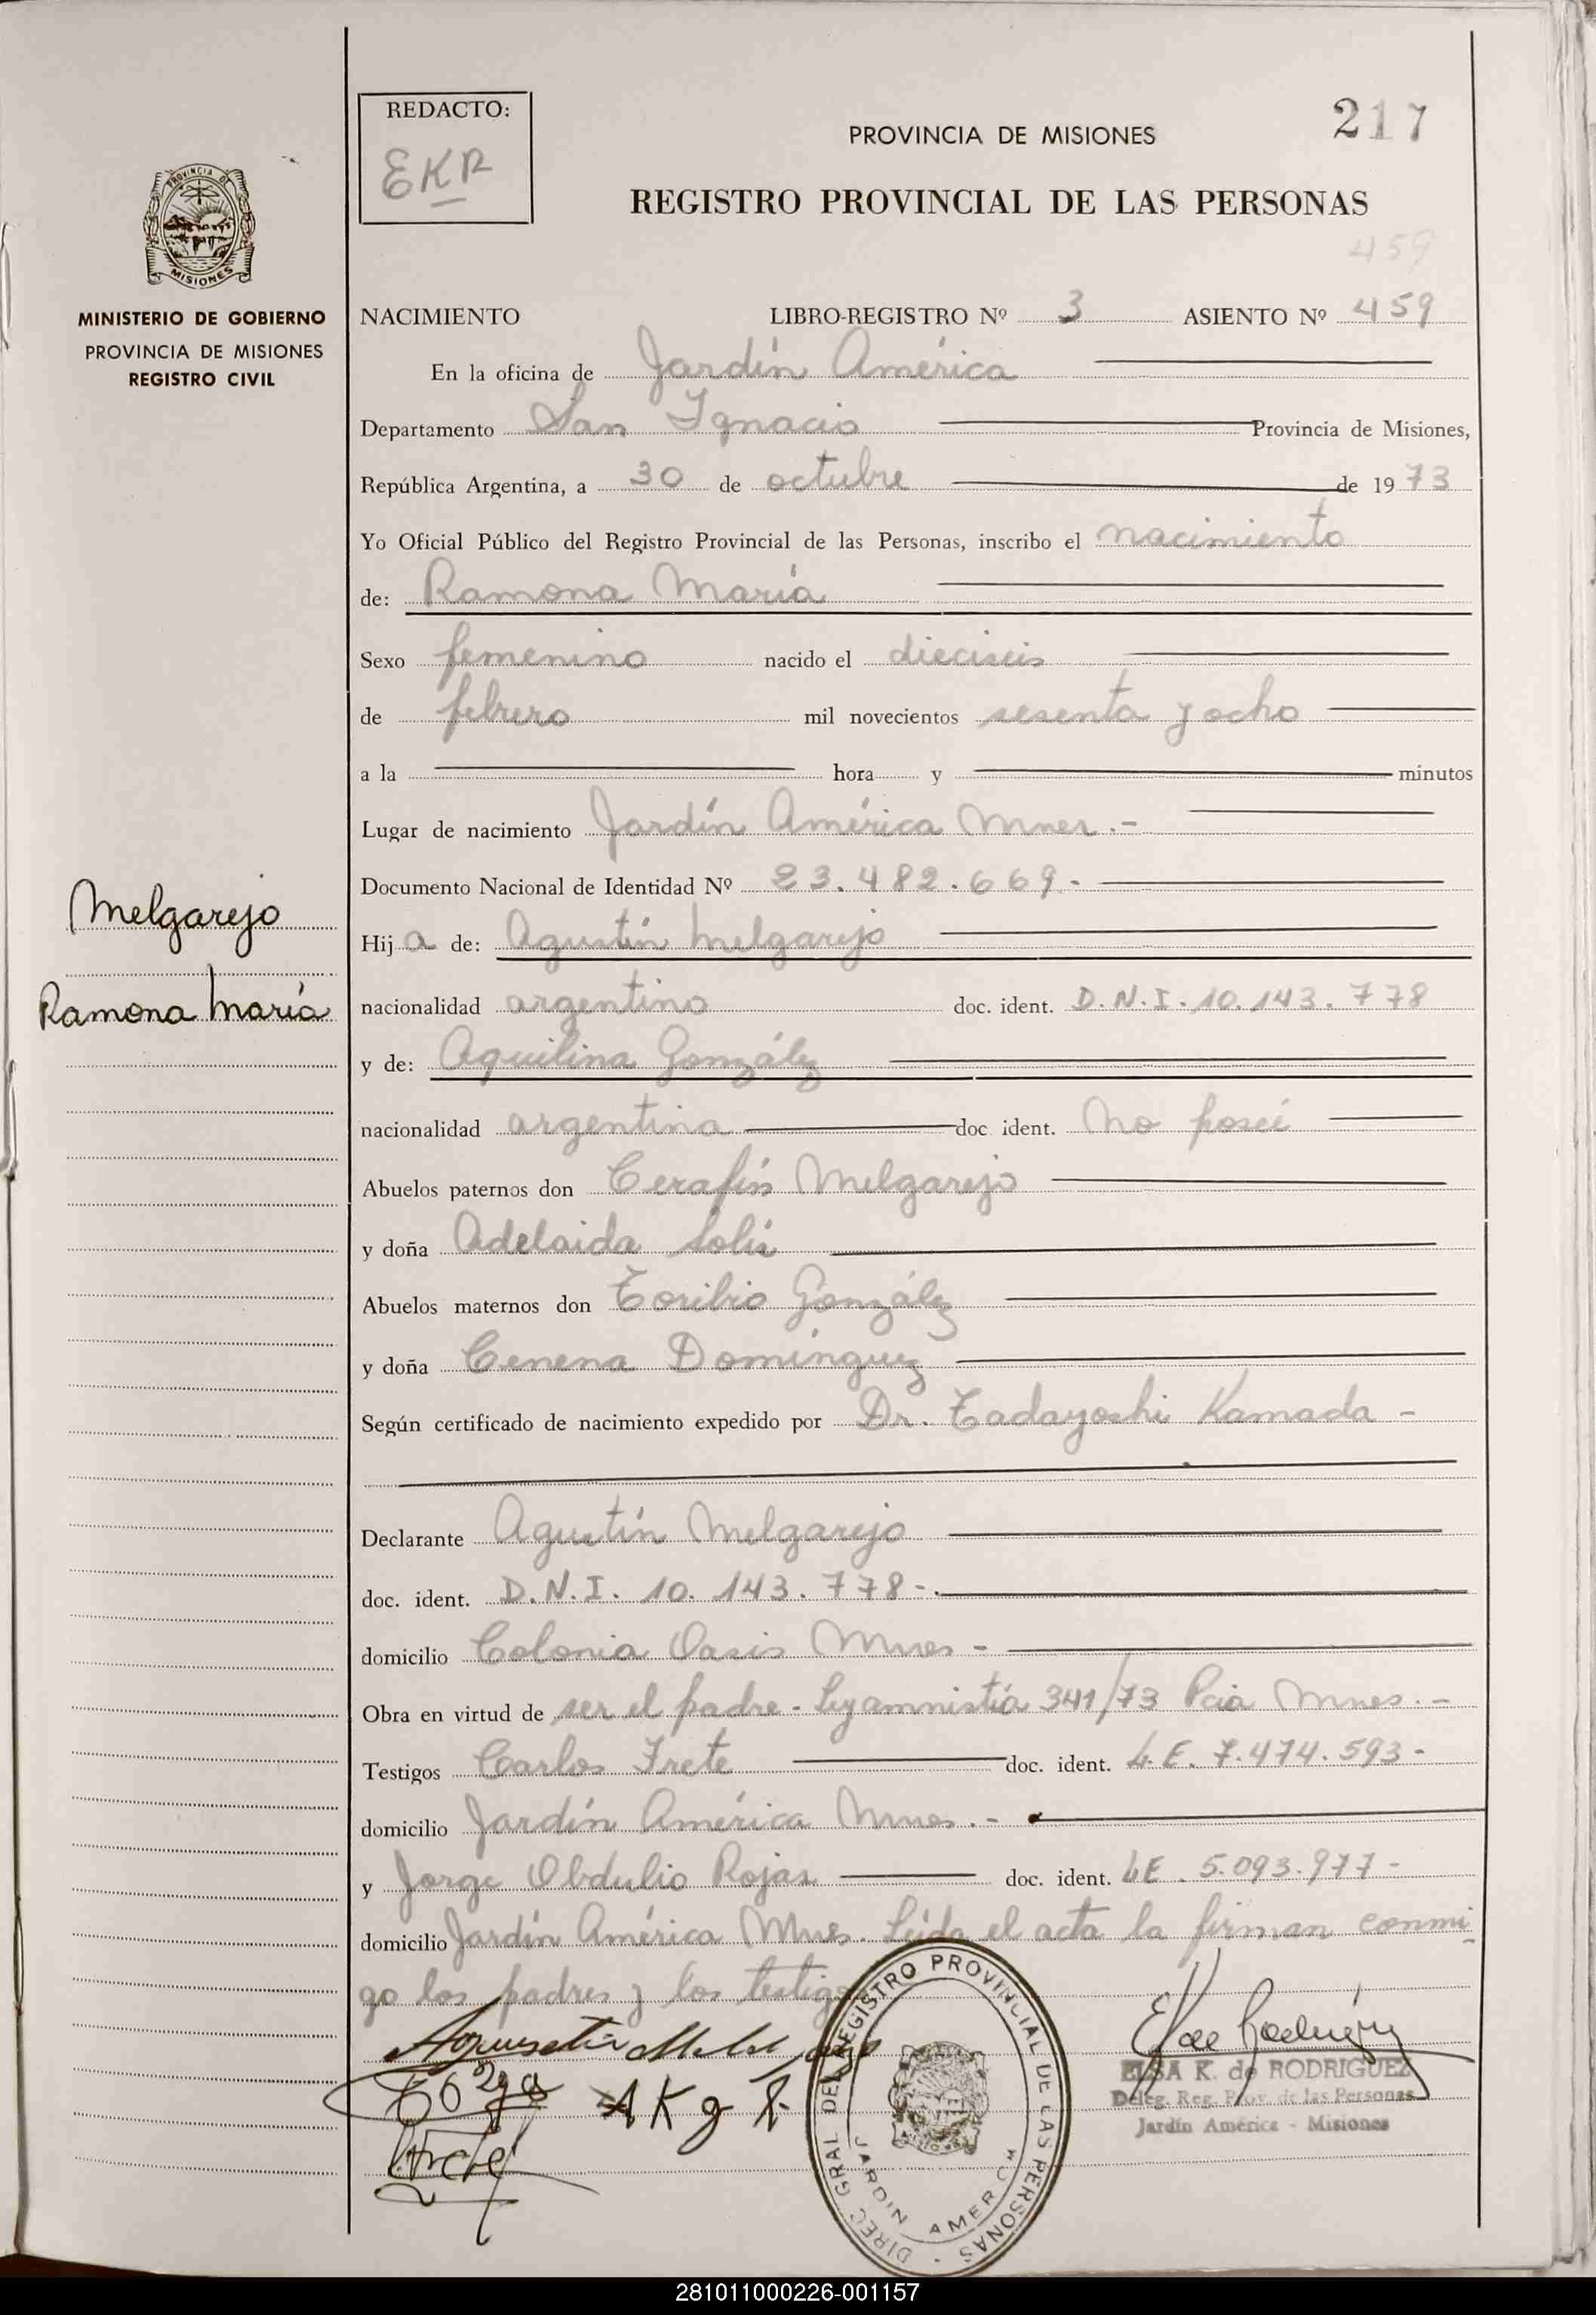 REDACTO:
EKR
217
PROVINCIA DE MISIONES
REGISTRO PROVINCIAL DE LAS PERSONAS
459
PROVINCIA DE
MISIONES
MINISTERIO DE GOBIERNO
PROVINCIA DE MISIONES
REGISTRO CIVIL
NACIMIENTO LIBRO-REGISTRO Nº 3 ASIENTO Nº 459
En la oficina de Jardín América
Departamento San Ignacio Provincia de Misiones,
República Argentina, a 30 de octubre de 1973
Yo Oficial Público del Registro Provincial de las Personas, inscribo el nacimiento
de: Ramona María
Sexo femenino nacido el dieciseis
de febrero mil novecientos sesenta y ocho
a la hora y minutos
Lugar de nacimiento Jardín América Mnes.-
Documento Nacional de Identidad Nº 23.482.669.-
Melgarejo
Ramona María
Hija de: Agustín Melgarejo
nacionalidad argentino doc. ident. D.N.I. 10.143.778
y de: Aquilina González
nacionalidad argentina doc. ident. No poseé
Abuelos paternos don Cerafín Melgarejo
y doña Adelaida Solís
Abuelos maternos don Toribio González
y doña Cenena Domínguez
Según certificado de nacimiento expedido por Dr. Tadayoshi Kamada -
Declarante Agustín Melgarejo
doc. ident. D.N.I. 10.143.778-.
domicilio Colonia Oasis Mnes -
Obra en virtud de ser el padre - Ley amnistía 341/73 Pcia Mnes.-
Testigos Carlos Frete doc. ident. L.E. 7.474.593-
domicilio Jardín América Mnes.-
y Jorge Obdulio Rojas doc. ident. LE. 5.093.977-
domicilio Jardín América Mnes. Leída el acta la firman conmi-
go los padres y los testigo
DIREC GRAL DEL REGISTRO PROVINCIAL DE LAS PERSONAS
JARDIN AMERICA
ELSA K. de RODRIGUEZ
Deleg. Reg. Prov. de las Personas
Jardín América - Misiones
281011000226-001157